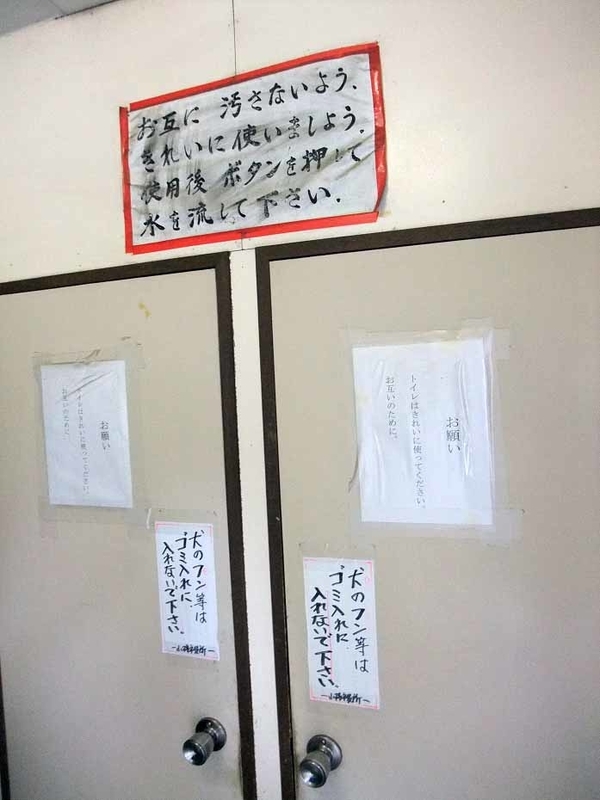 お互に 汚さないよう、
きれいに使いましよう。
使用後 ボタンを押して
水を流して下さい。
お願い
トイレはきれいに使ってください。
お互いのために。
お願い
トイレはきれいに使ってください。
お互いのために。
犬のフン等は
ゴミ入れに
入れないで下さい。
犬のフン等は
ゴミ入れに
入れないで下さい。